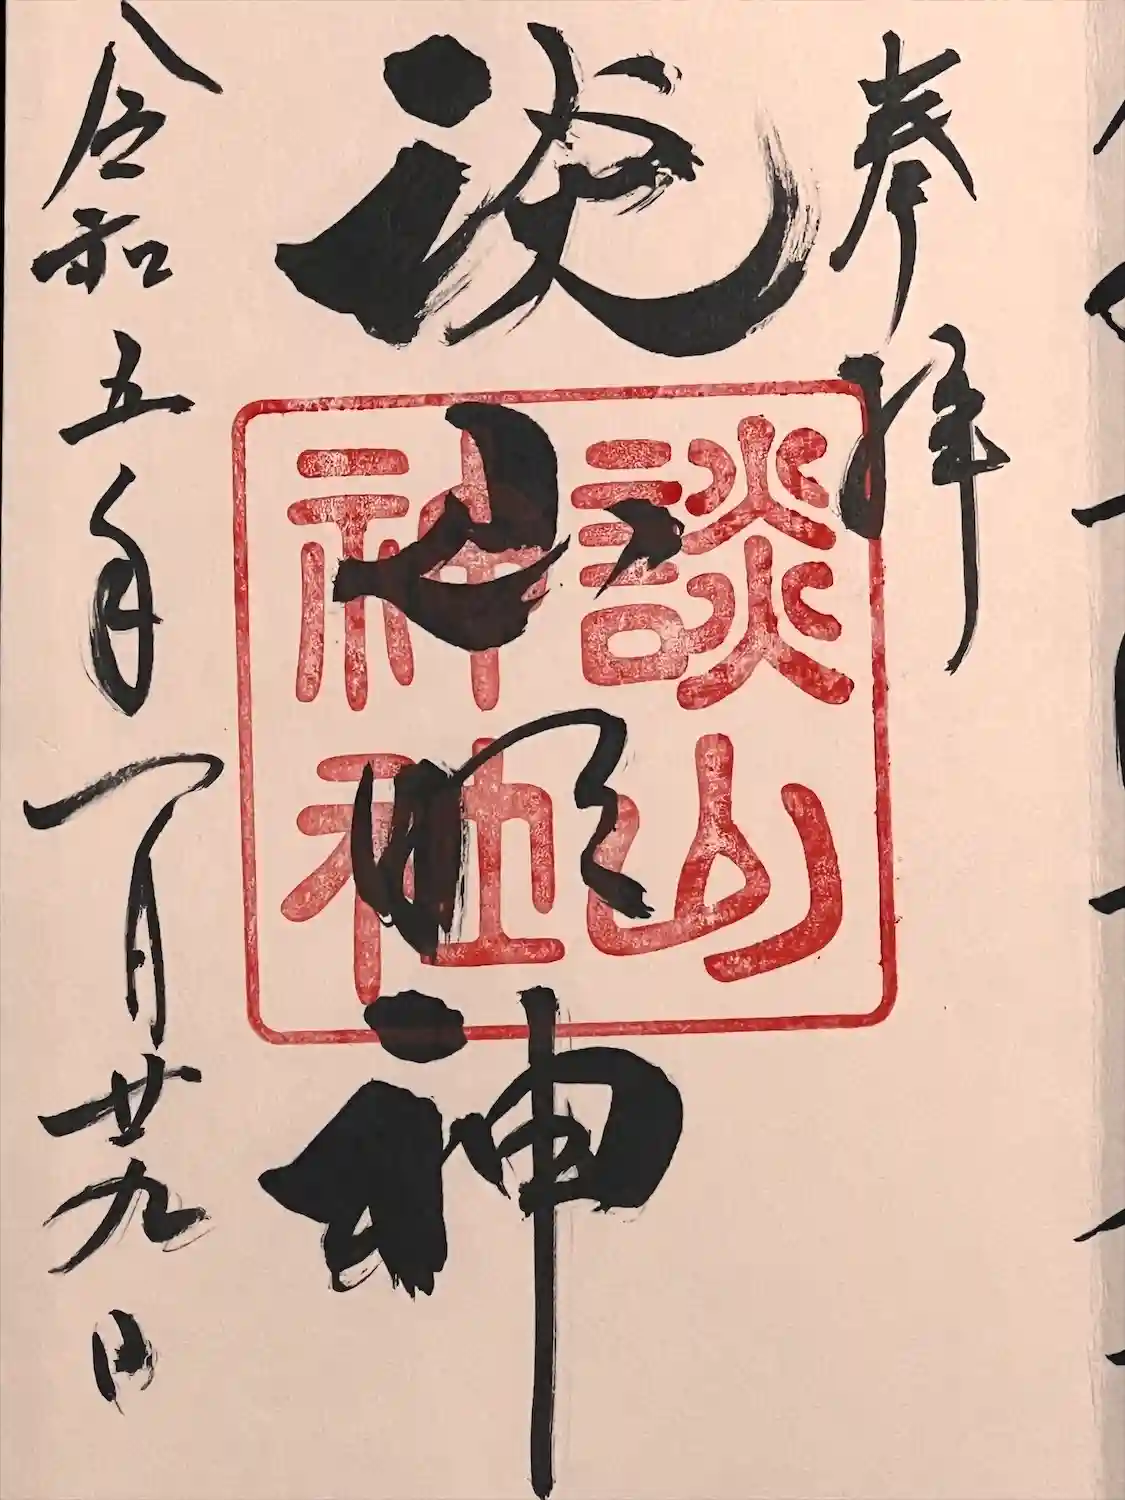 奉拝
談山明神
談山
神社
令和五年一月廿九日